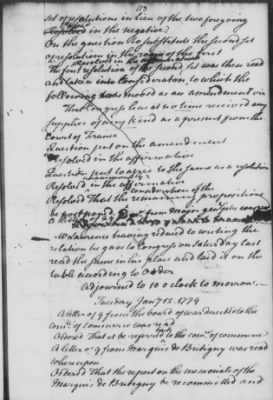 113
set of resolutions in lieu of the two foregoing
Resolved in the negative
On the question to substitute the second set
of resolutions in the room of the first
Resolved in the affirmative
The first resolution of the second set was then read
and taken into consideration to which the
following was moved as an amendment viz
That Congress has at no time received any
supplies of any kind as a present from the
Court of France
Question put on the amendment
Resolved in the affirmative
Question put to agree to the same as a resolution
Resolved in the affirmative
Resolved That the consideration of the remaining propositions
be postponed
Mr Laurens having reduced to writing the
relation he gave to Congress on Saturday last
read the same in his place and laid it on the
table according to Order
Adjourned to 10 o Clock to morrow.
Tuesday Jany 12. 1779
A letter of 9 from the board of war directed to the
comee. of commerce was read
Ordered That it be referred to the comee. of commerce
A letter of 9 from Marquis de Bretigny was read
whereupon
Ordered That the report on the memorials of the
Marquis de Bretigny be recommitted and